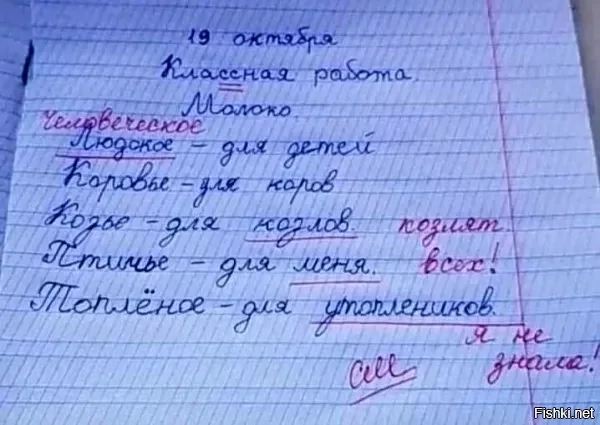 19 октября
Классная работа.
Молоко.
человеческое
Людское – для детей
Коровье – для коров
Козье – для козлов. козлят.
Птичье – для меня. всех!
Топлёное – для утоплеников.
я не
см знала!
Fishki.net